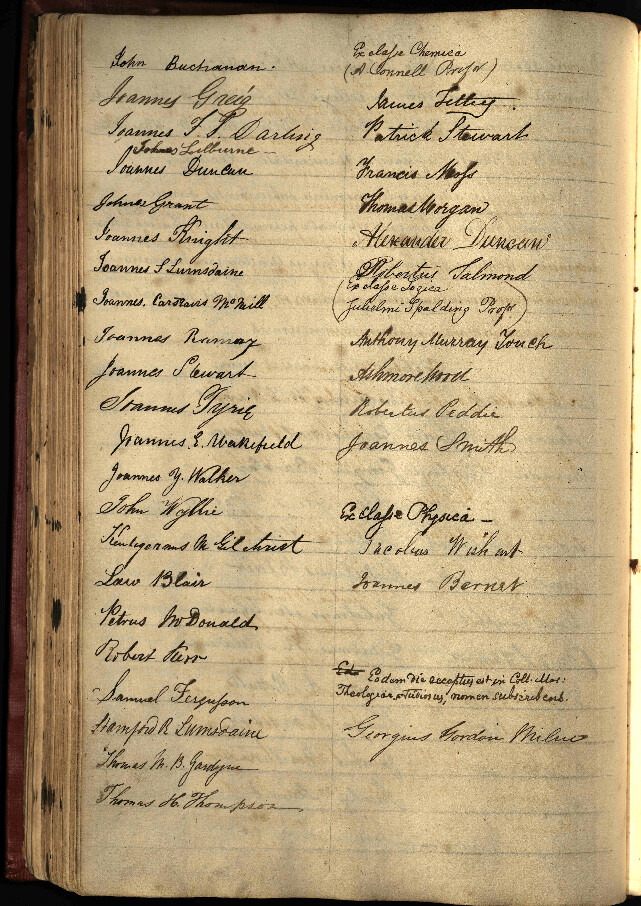 John Buchanan.
Joannes Greig
Joannes T. P. Darling
Johnes Lilburne
Joannes Duncan
Johnes Grant
Joannes Knight
Joannes S Lumsdaine
Joannes. McMill
Joannes Ramsay
Joannes Stewart
Joannes Tyrie
Joannes. E. Wakefield
Joannes Y. Walker
John Wyllie
Kentigernus McGilchrist
Law Blair
Petrus McDonald
Robert Kerr
Samuel Fergusson
Stamford R Lumsdaine
Thomas M. B. Gardyne
Thomas H. Thompson
Ex classe Chemica
(A Connell Profsr)
James
Patrick Stewart
Francis Moss
Thomas Morgan
Alexander Duncan
Robertus Salmond
(Ex classe Logica
Gulielmi Spalding Profsr)
Anthony Murray Touch
Ashmore Wood
Robertus Peddie
Joannes Smith
Ex classe Physica —
Jacobus Wishart
Joannes Bernet
Eodem die acceptus est in Coll: Mar:
Theologiae studiosus, nomen subscribens.
Georgius Gordon Milne